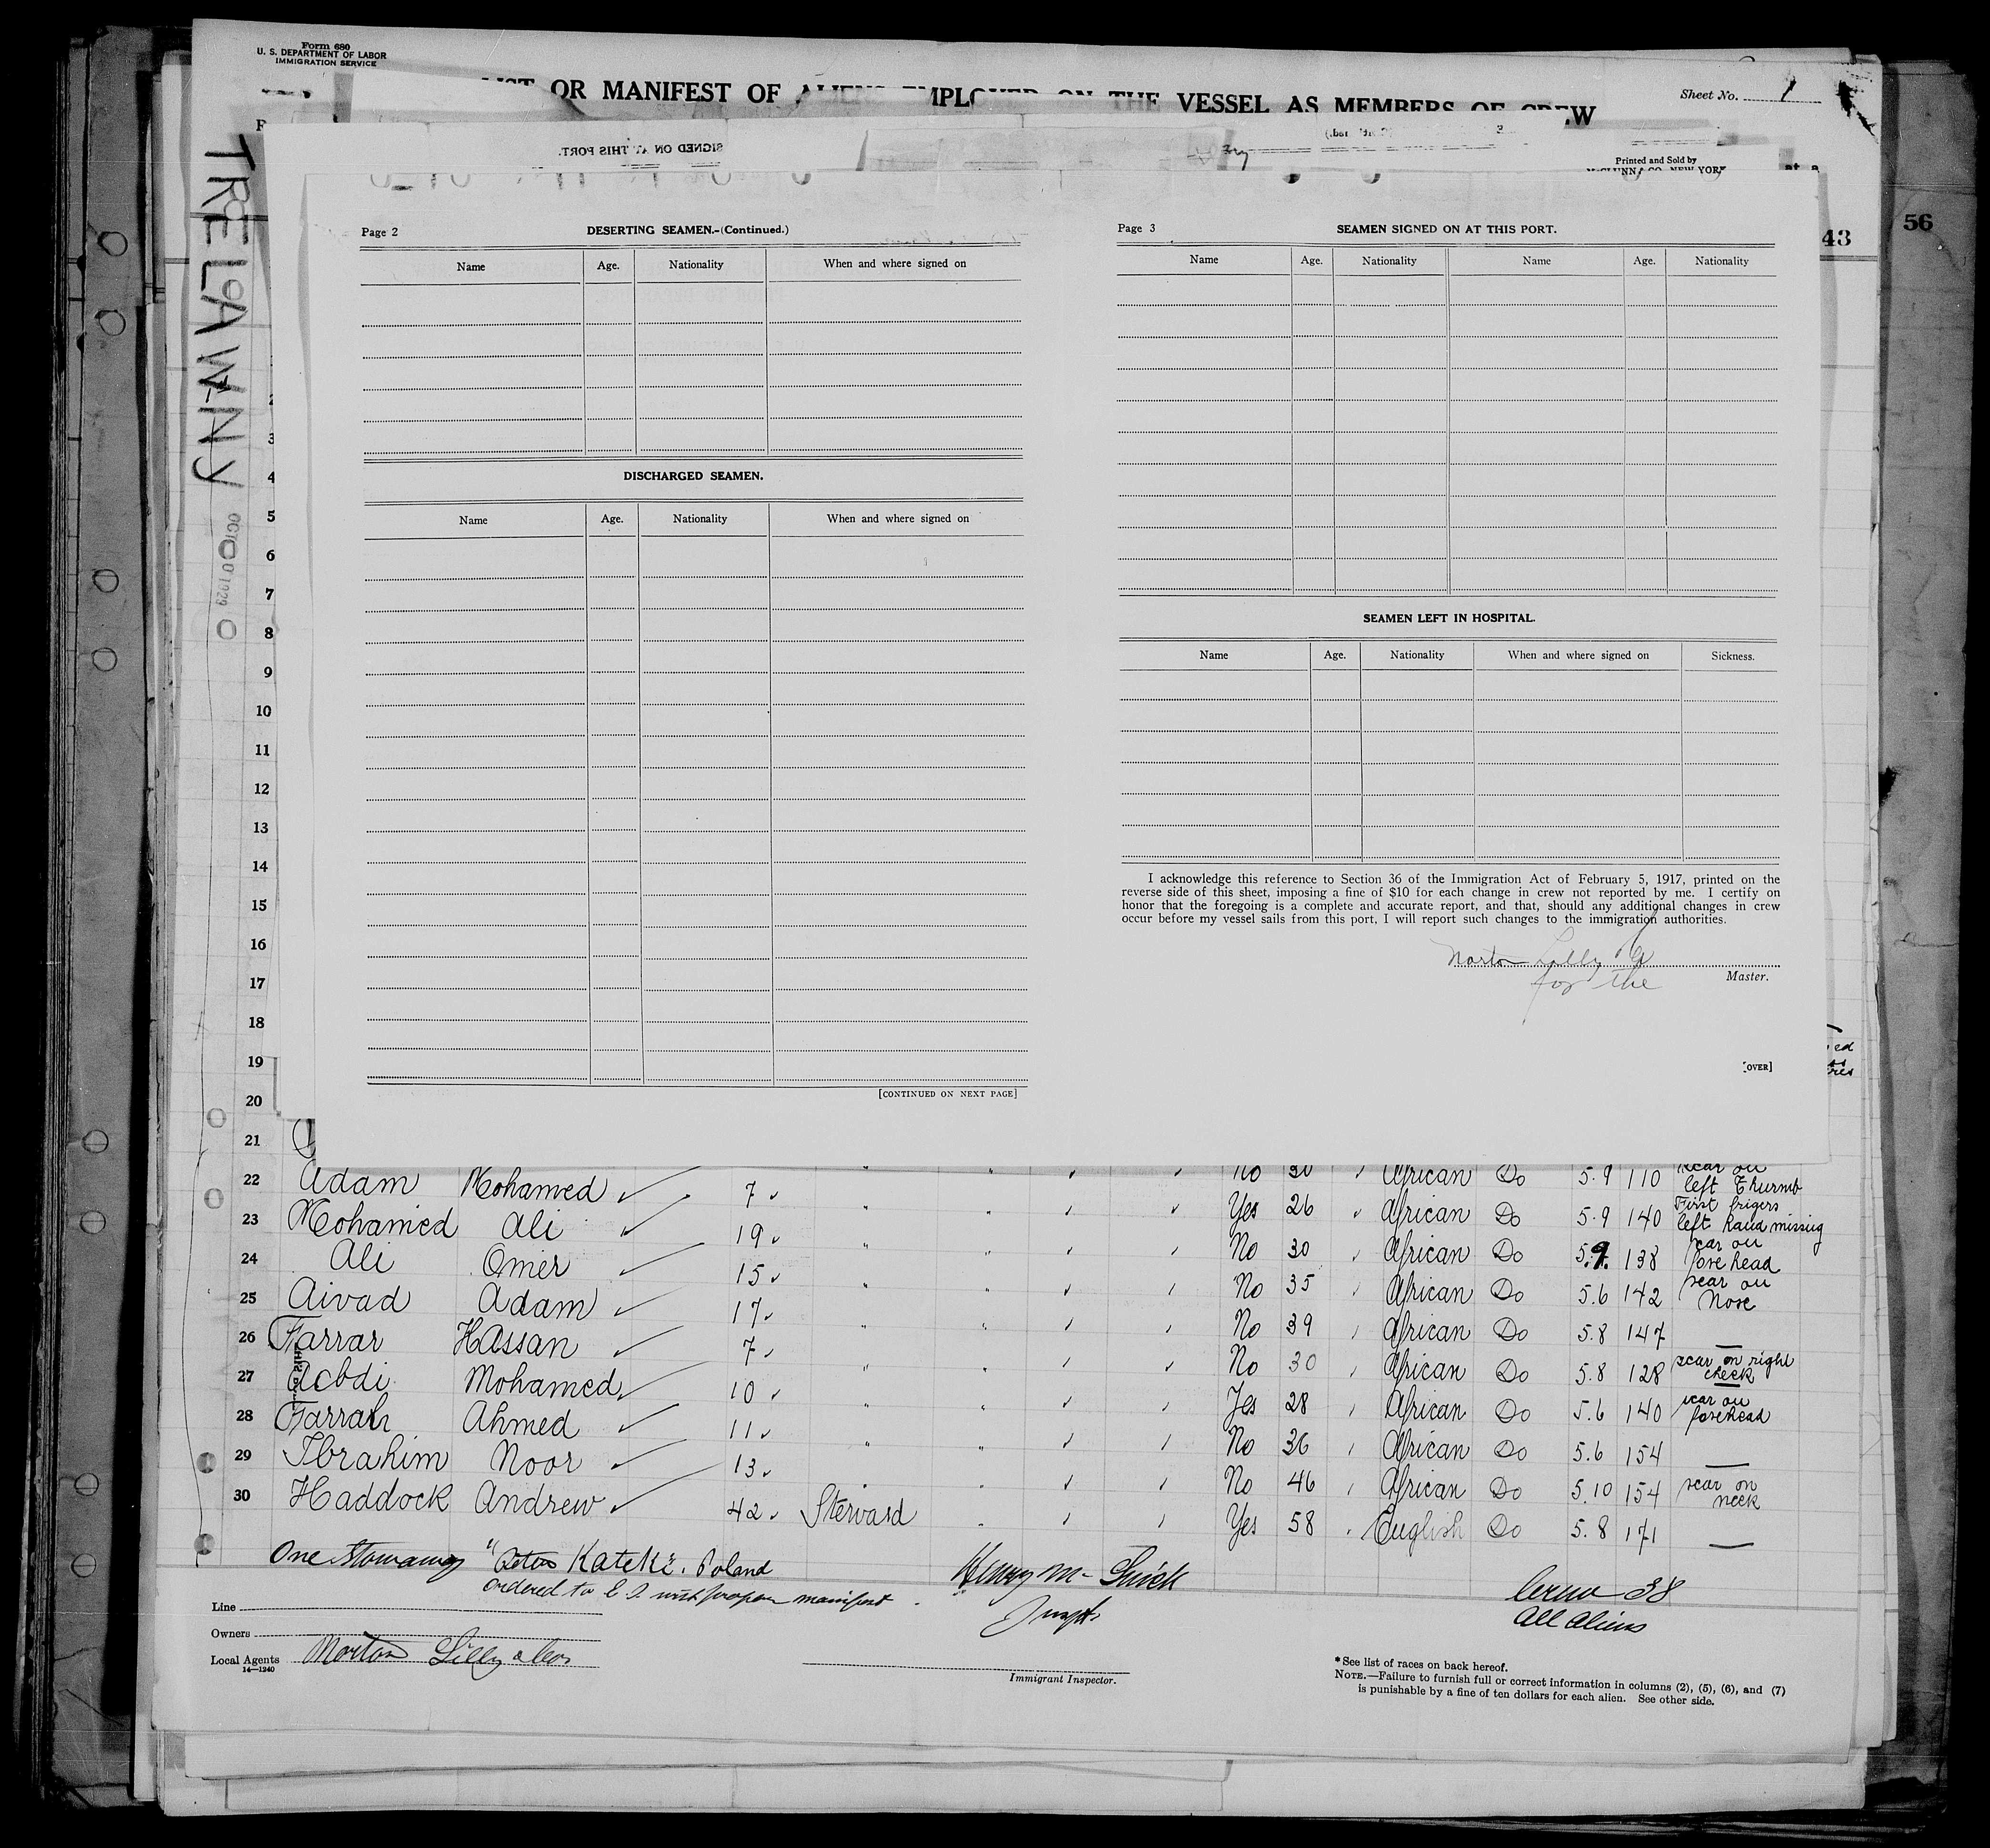 Form 680
U. S. DEPARTMENT OF LABOR
IMMIGRATION SERVICE
LIST OR MANIFEST OF ALIENS EMPLOYED ON THE VESSEL AS MEMBERS OF CREW
Sheet No. 1
SIGNED ON AT THIS PORT.
Printed and Sold by
TRELAWNY
56
43
Page 2
DESERTING SEAMEN.-(Continued.)
Name Age. Nationality When and where signed on
DISCHARGED SEAMEN.
Name Age. Nationality When and where signed on
[CONTINUED ON NEXT PAGE]
Page 3
SEAMEN SIGNED ON AT THIS PORT.
Name Age. Nationality Name Age. Nationality
SEAMEN LEFT IN HOSPITAL.
Name Age. Nationality When and where signed on Sickness.
I acknowledge this reference to Section 36 of the Immigration Act of February 5, 1917, printed on the
reverse side of this sheet, imposing a fine of $10 for each change in crew not reported by me. I certify on
honor that the foregoing is a complete and accurate report, and that, should any additional changes in crew
occur before my vessel sails from this port, I will report such changes to the immigration authorities.
Norton Lilly Co
for the Master.
[OVER]
3
4
5
6
7
8
9
10
11
12
13
14
15
16
17
18
19
20
21
22 Adam Mohamed 7 " " No 30 African Do 5.9 110 scar on left Thurmb
23 Mohamed Ali 19 " " Yes 26 African Do 5.9 140 First frigers left hand missing
24 Ali Omer 15 " " No 30 African Do 5.9. 138 scar on forehead
25 Aivad Adam 17 " " No 35 African Do 5.6 142 scar on Nose
26 Farrar Hassan 7 " " No 39 African Do 5.8 147 —
27 Acbdi Mohamed 10 " " No 30 African Do 5.8 128 scar on right cheek
28 Farrah Ahmed 11 " " Yes 28 African Do 5.6 140 scar on forehead
29 Ibrahim Noor 13 " " No 36 African Do 5.6 154 —
30 Haddock Andrew 42 Steward No 46 African Do 5.10 154 scar on neck
Yes 58 English Do 5.8 171 —
One Stowaway Kateki. Poland
ordered to E. I. with proper manifest.
Henry
Insptr
38
All Aliens
Line
Owners
Local Agents Norton Lilly & Co
14—1240
Immigrant Inspector.
* See list of races on back hereof.
NOTE.—Failure to furnish full or correct information in columns (2), (5), (6), and (7)
is punishable by a fine of ten dollars for each alien. See other side.